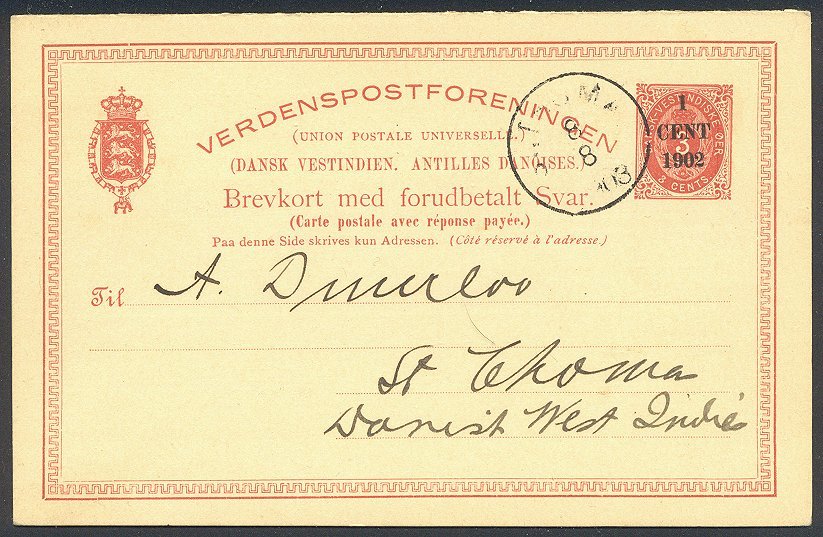 VERDENSPOSTFORENINGEN
(UNION POSTALE UNIVERSELLE.)
(DANSK VESTINDIEN. ANTILLES DANOISES.)
Brevkort med forudbetalt Svar.
(Carte postale avec réponse payée.)
Paa denne Side skrives kun Adressen. (Côté réservé à l'adresse.)
1
CENT
1902
VESTINDISTE ØER
3
3 CENTS
8
8
Til A.
St Thomas
Danish West Indies